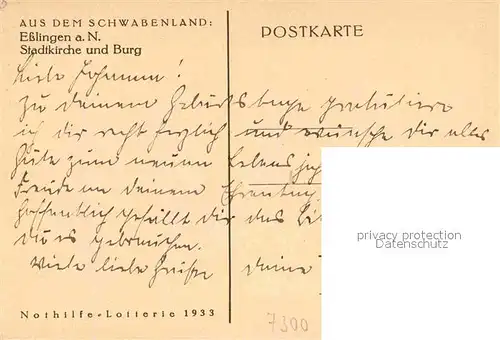 AUS DEM SCHWABENLAND:
Eßlingen a. N.
Stadtkirche und Burg
POSTKARTE
Liebe Johanna!
Zu deinem Geburtstage gratuliere
ich dir recht herzlich und wünsche dir alles
Gute zum neuen Lebensjah
Freude an deinem Ehrentag
hoffentlich gefällt dir das
du es gebrauchen.
Viele liebe Grüße deine
privacy protection
Datenschutz
Nothilfe-Lotterie 1933
7300